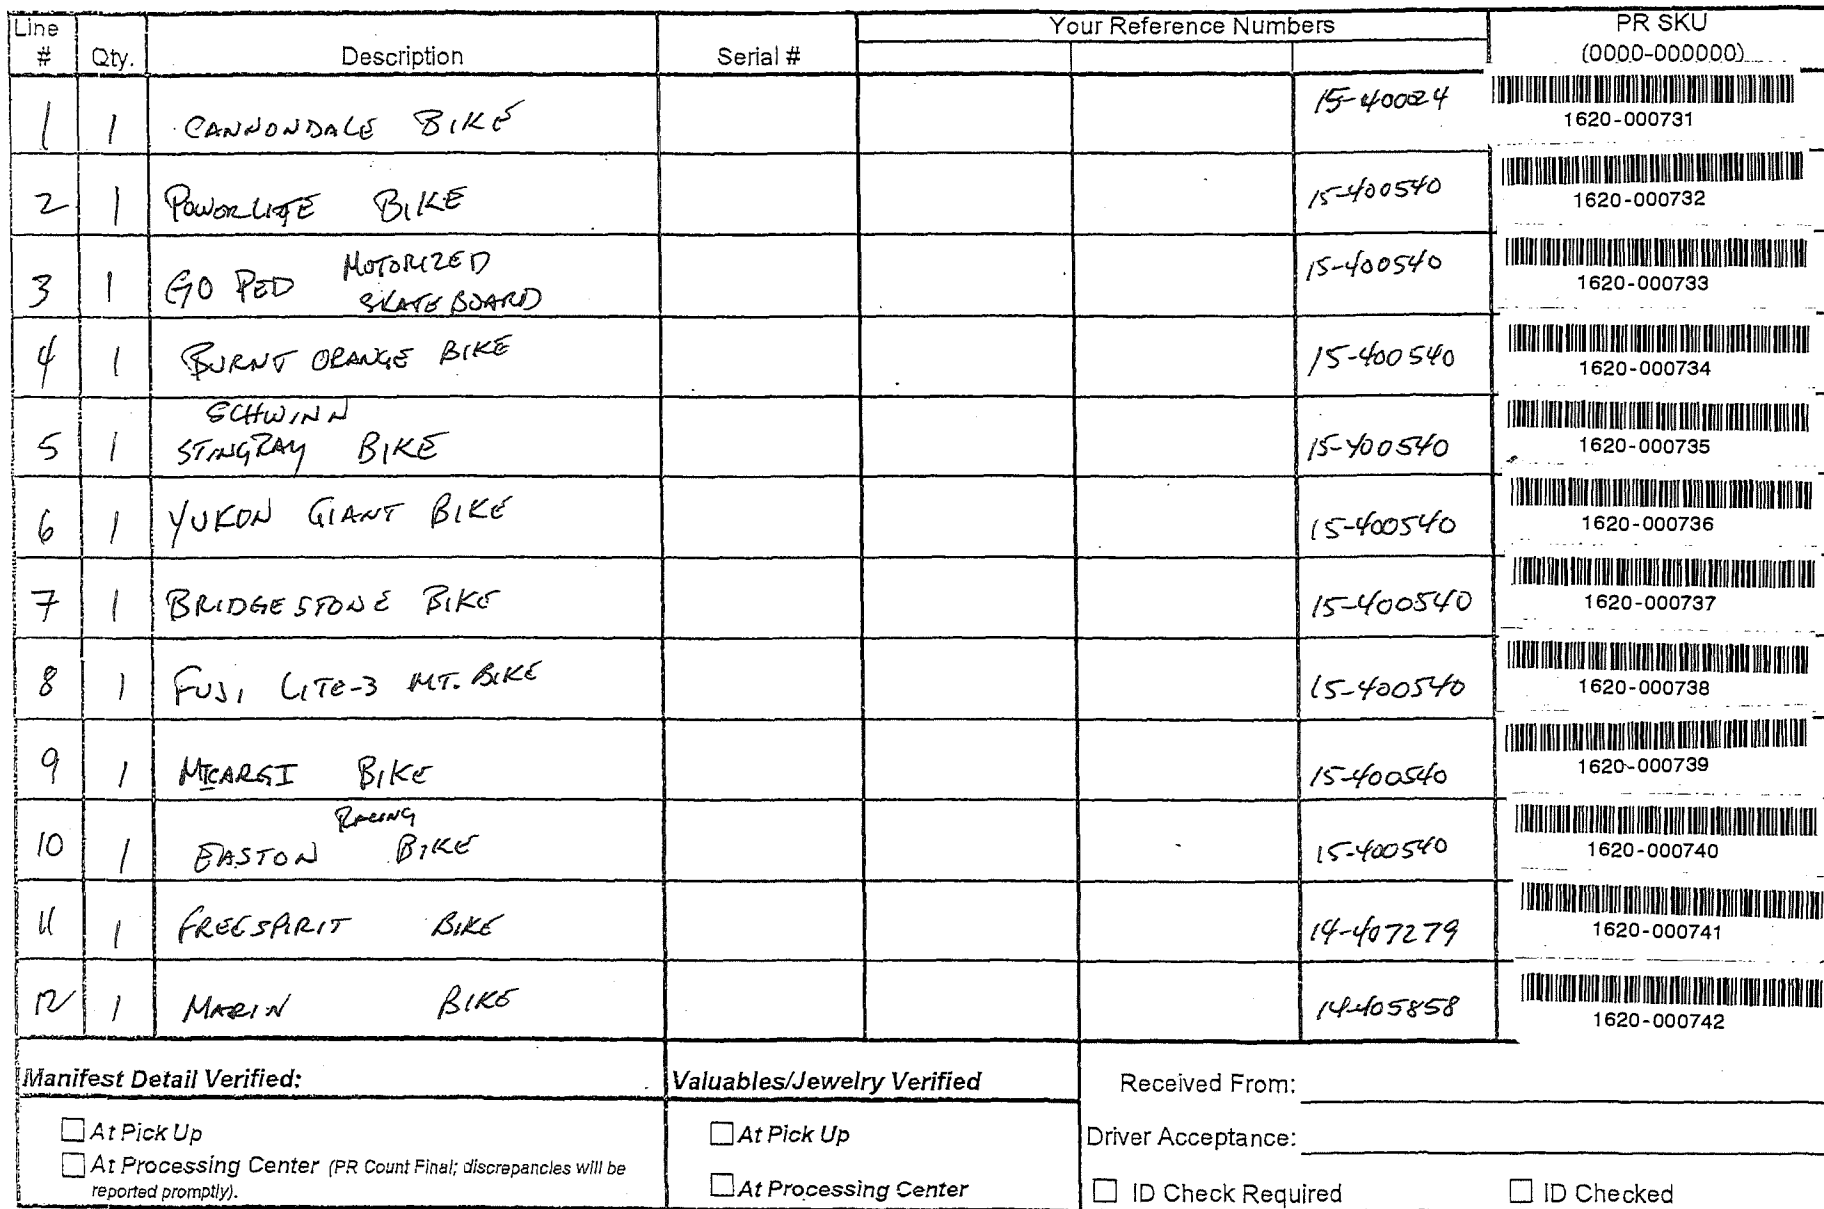 Line # Qty. Description Serial # Your Reference Numbers PR SKU (0000-000000)
1 1 CANNONDALE BIKE 15-40024 1620-000731
2 1 POWERLITE BIKE 15-400540 1620-000732
3 1 GO PED MOTORIZED SKATEBOARD 15-400540 1620-000733
4 1 BURNT ORANGE BIKE 15-400540 1620-000734
5 1 SCHWINN STINGRAY BIKE 15-400540 1620-000735
6 1 YUKON GIANT BIKE 15-400540 1620-000736
7 1 BRIDGESTONE BIKE 15-400540 1620-000737
8 1 FUJI LITE-3 MT. BIKE 15-400540 1620-000738
9 1 MICARGI BIKE 15-400540 1620-000739
10 1 EASTON RACING BIKE 15-400540 1620-000740
11 1 FREESPIRIT BIKE 14-407279 1620-000741
12 1 MARIN BIKE 14-405858 1620-000742
Manifest Detail Verified: Valuables/Jewelry Verified Received From:
At Pick Up At Pick Up Driver Acceptance:
At Processing Center (PR Count Final; discrepancies will be
reported promptly). At Processing Center ID Check Required ID Checked